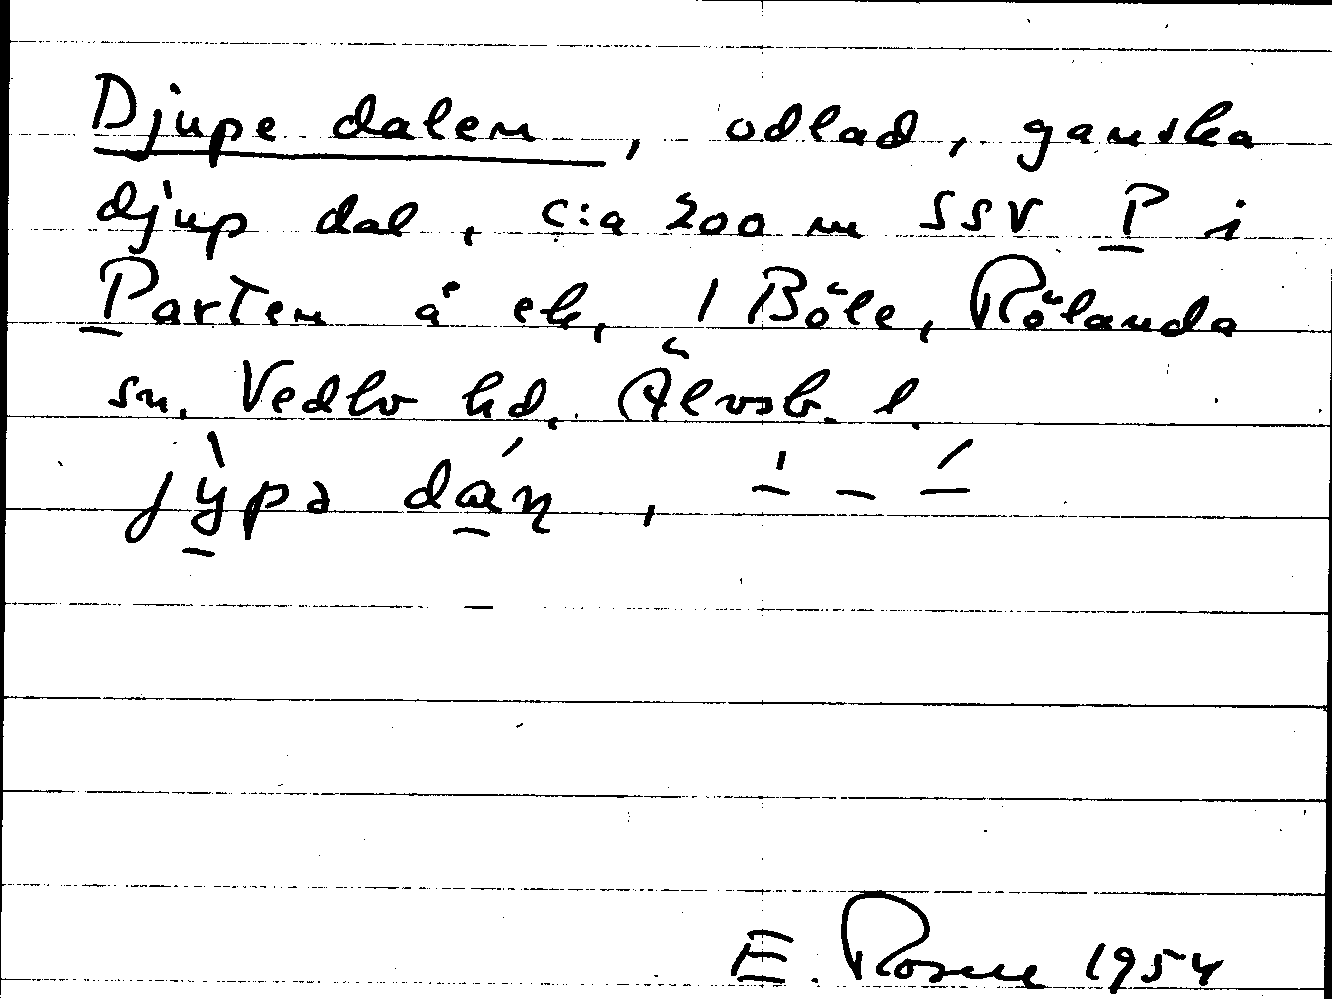 Djupe dalen, odlad, ganska
djup dal, c:a 200 m SSV P i
Parten å ek, 1 Böle, Rölanda
sn. Vedbo hd, Älvsb. l.
jỳpə dáṇ,
E. Rosell 1954